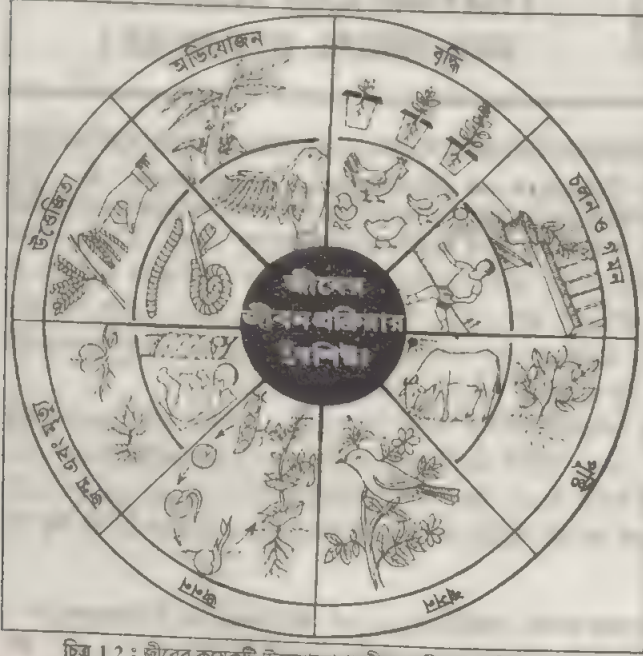 অভিযোজন
বৃদ্ধি
চলন ও গমন
পুষ্টি
শ্বসন
জনন
জন্ম এবং মৃত্যু
উত্তেজিতা
জীবনের
জীবন প্রক্রিয়ার
বৈশিষ্ট্য
চিত্র 1.2 : জীবের কয়েকটি